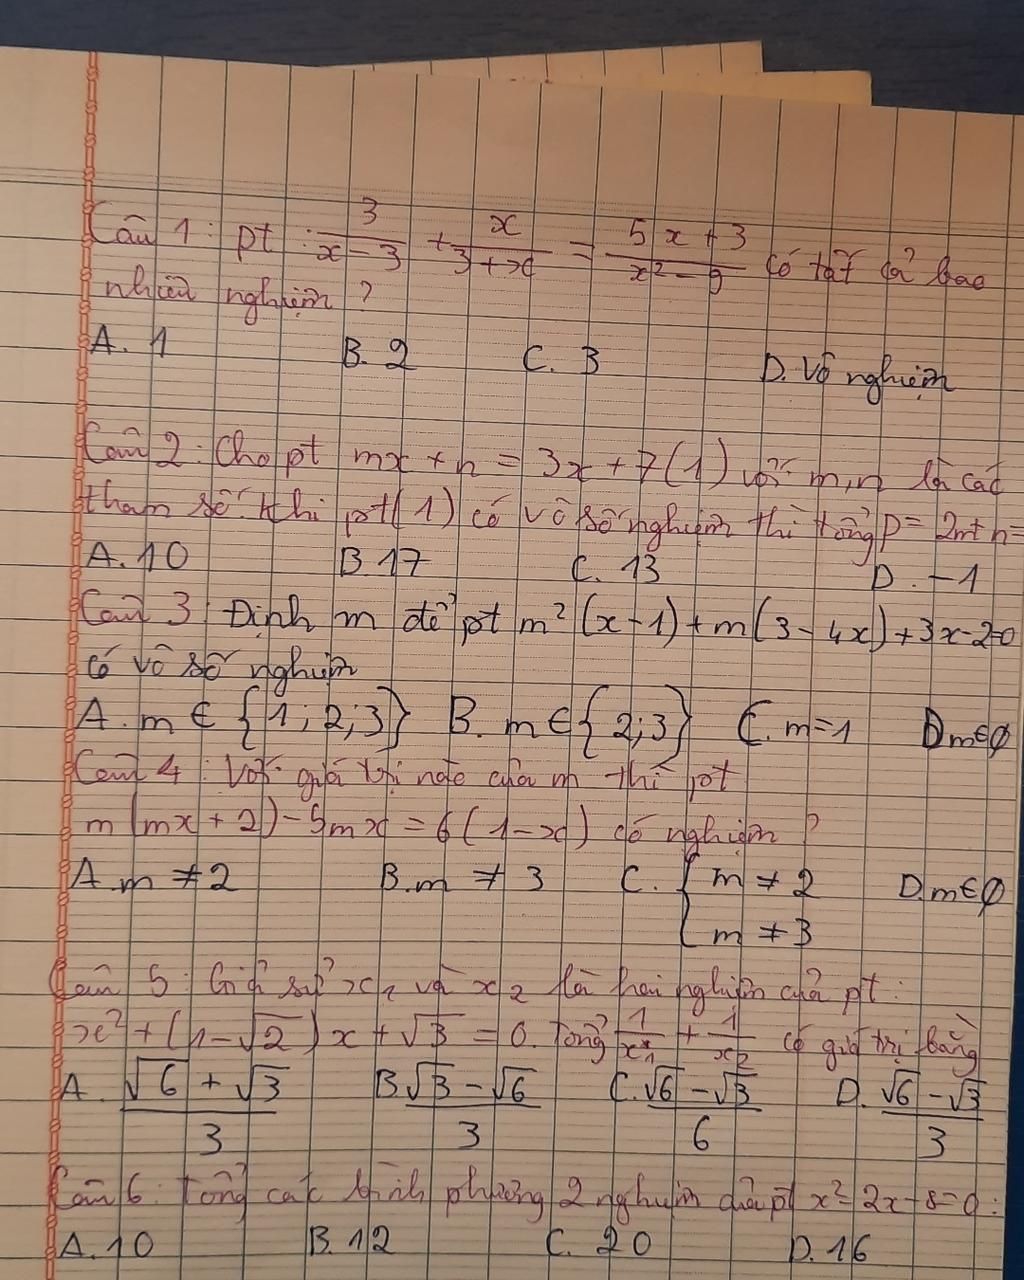 Câu 1: pt: \frac{3}{x-3} + \frac{x}{3+x} = \frac{5x+3}{x²-9} có tất cả bao
nhiêu nghiệm ?
A. 1 B. 2 C. 3 D. Vô nghiệm
Câu 2: Cho pt mx + n = 3x + 7 (1) với m, n là các
tham số. Khi pt (1) có vô số nghiệm thì tổng P = 2m + n =
A. 10 B. 17 C. 13 D. -1
Câu 3: Định m để pt m² (x-1) + m(3-4x) + 3x-2=0
có vô số nghiệm
A. m ∈ {1; 2; 3} B. m ∈ {2; 3} C. m = 1 D m ∈ ∅
Câu 4: Với giá trị nào của m thì pt
m(mx + 2) - 5mx = 6(1-x) có nghiệm ?
A. m ≠ 2 B. m ≠ 3 C. { m ≠ 2 D. m ∈ ∅
m ≠ 3
Câu 5: Giả sử x₁ và x₂ là hai nghiệm của pt:
x² + (1-√2)x + √3 = 0. Tổng \frac{1}{x₁} + \frac{1}{x₂} có giá trị bằng
A. \frac{√6 + √3}{3} B. \frac{√3 - √6}{3} C. \frac{√6 - √3}{6} D. \frac{√6 - √3}{3}
Câu 6: Tổng các bình phương 2 nghiệm của pt x²-2x-8=0:
A. 10 B. 12 C. 20 D. 16